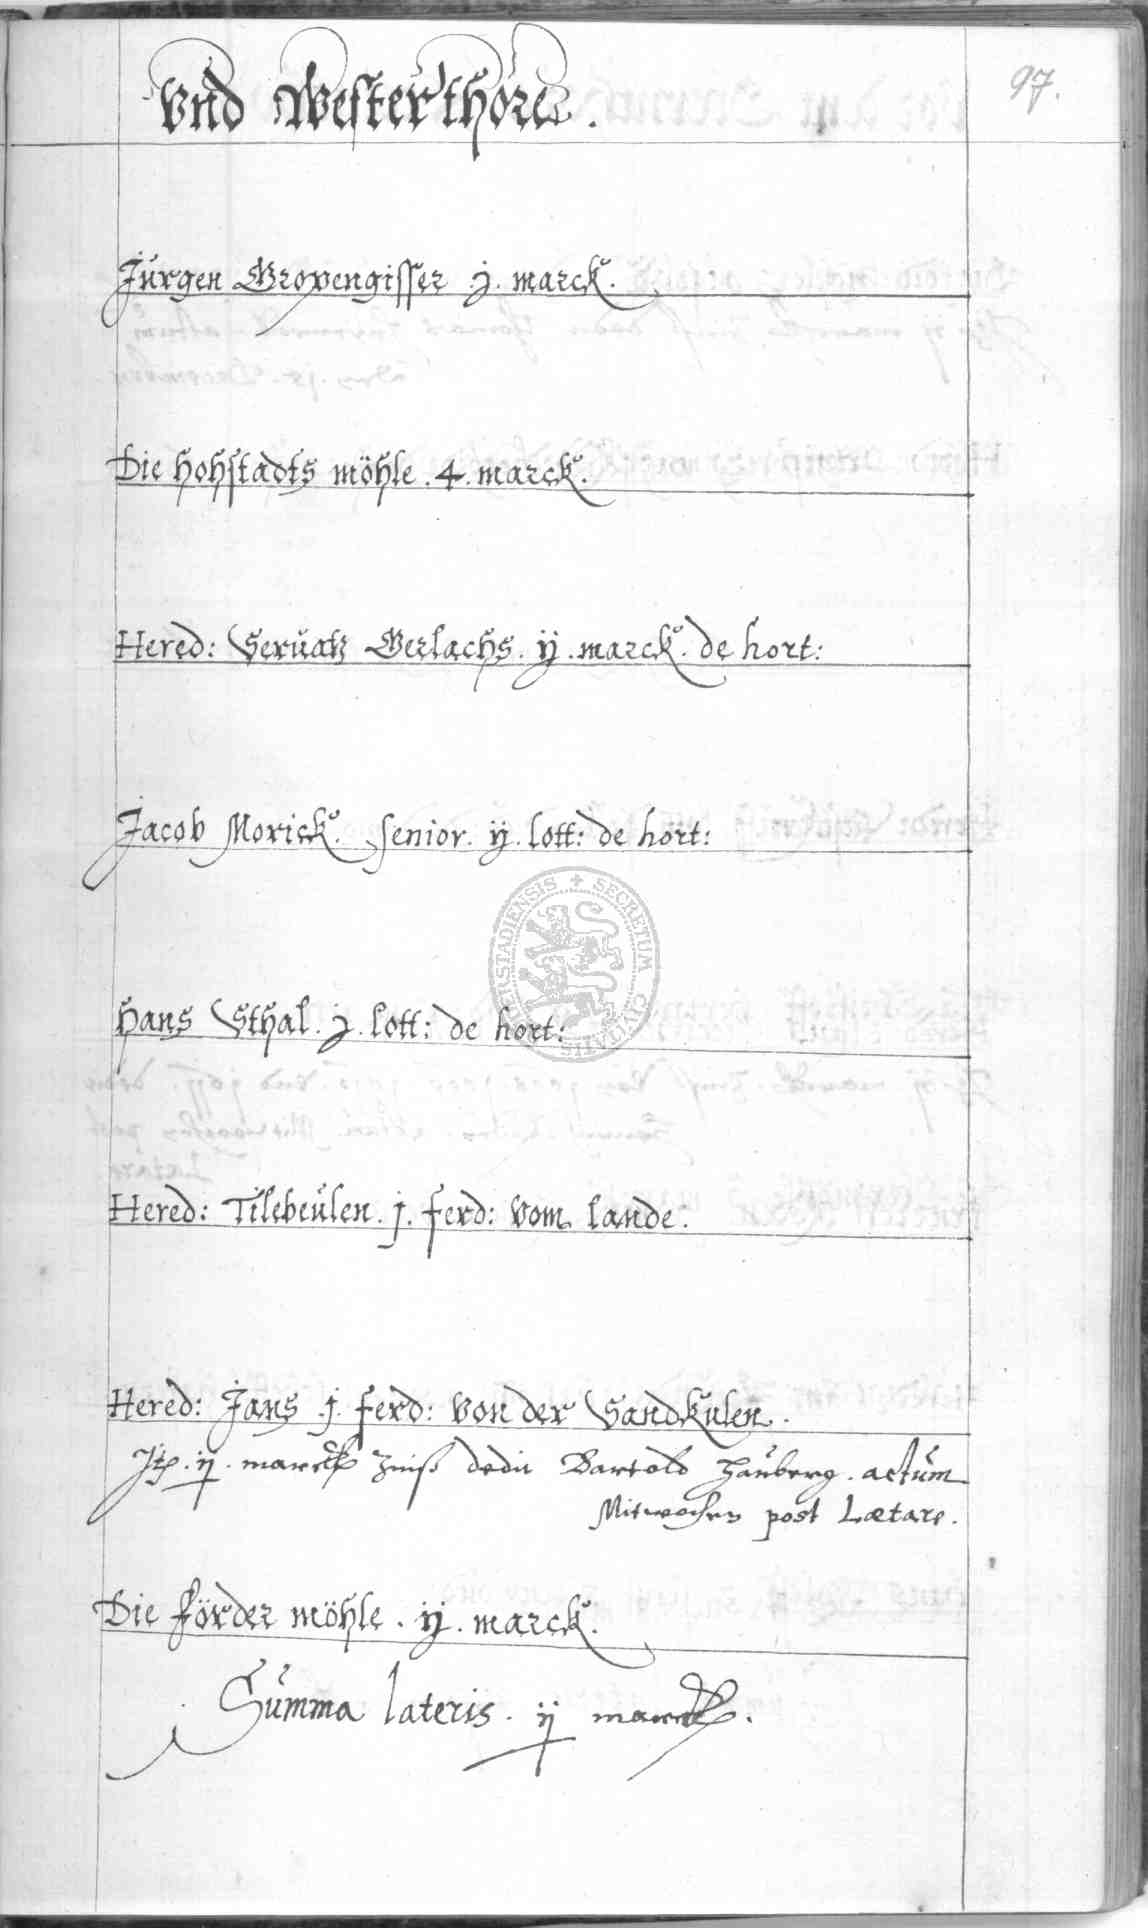 97.
Vnd Westerthore.
Jürgen Gropengisser .j. marck.
Die Hohstadts möhle .4. marck.
Hered: Seruatz Gerlachs. ij. marck. de hort:
Jacob Morick. senior. ij. lott: de hort:
Hans Sthal. j. lott: de hort:
Hered: Tilebeulen. j. ferd: vom lande.
Hered: Jans .j. ferd: von der Sandkulen.
Itp. ij. marck zinß dedit Bartold Hauberg. actum
Mitwochen post Lætare.
Die förder möhle. ij. marck.
Summa lateris. ij marck.
SECRETUM CIVITATIS